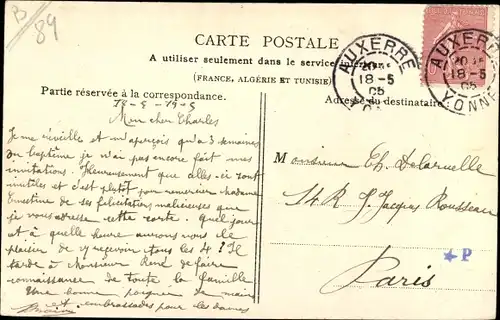 B
89
CARTE POSTALE
A utiliser seulement dans le service intérieur
(FRANCE, ALGÉRIE ET TUNISIE)
Partie réservée à la correspondance.
Adresse du destinataire
AUXERRE
18-5
05
AUXERRE
18-5
05
YONNE
18-5-1905
Mon cher Charles
Je me réveille et m'aperçois qu'à 3 semaines
du baptême je n'ai pas encore fait mes
invitations. Heureusement que elles ici sont
inutiles et c'est plutôt pour remercier Madame
Ernestine de ses félicitations malicieuses que
je vous adresse cette carte. Quel jour
et à quelle heure aurons nous le
plaisir de y recevoir tous les 4? Il
tarde à Monsieur René de faire
connaissance de toute la famille
Une bonne poignée de mains
et embrassades pour les dames
Monsieur Ch. Delaruelle
14 R J. Jacques Rousseau
Paris
P